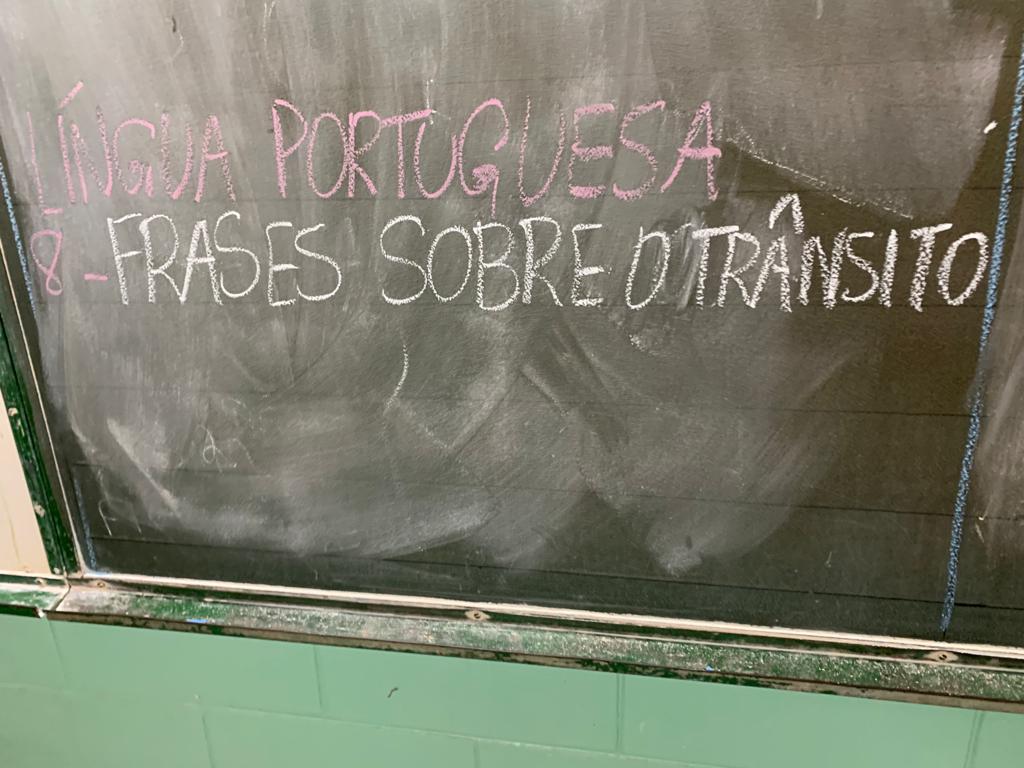 LÍNGUA PORTUGUESA
8 - FRASES SOBRE O TRÂNSITO